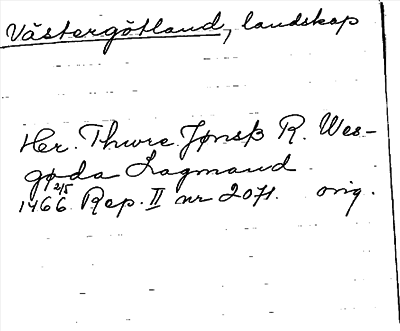 Västergötland, landskap
Her. Thure Jønsß R. Wes-
gøda Lagmand
1466 2/5 Rep. II nr 2071. orig.